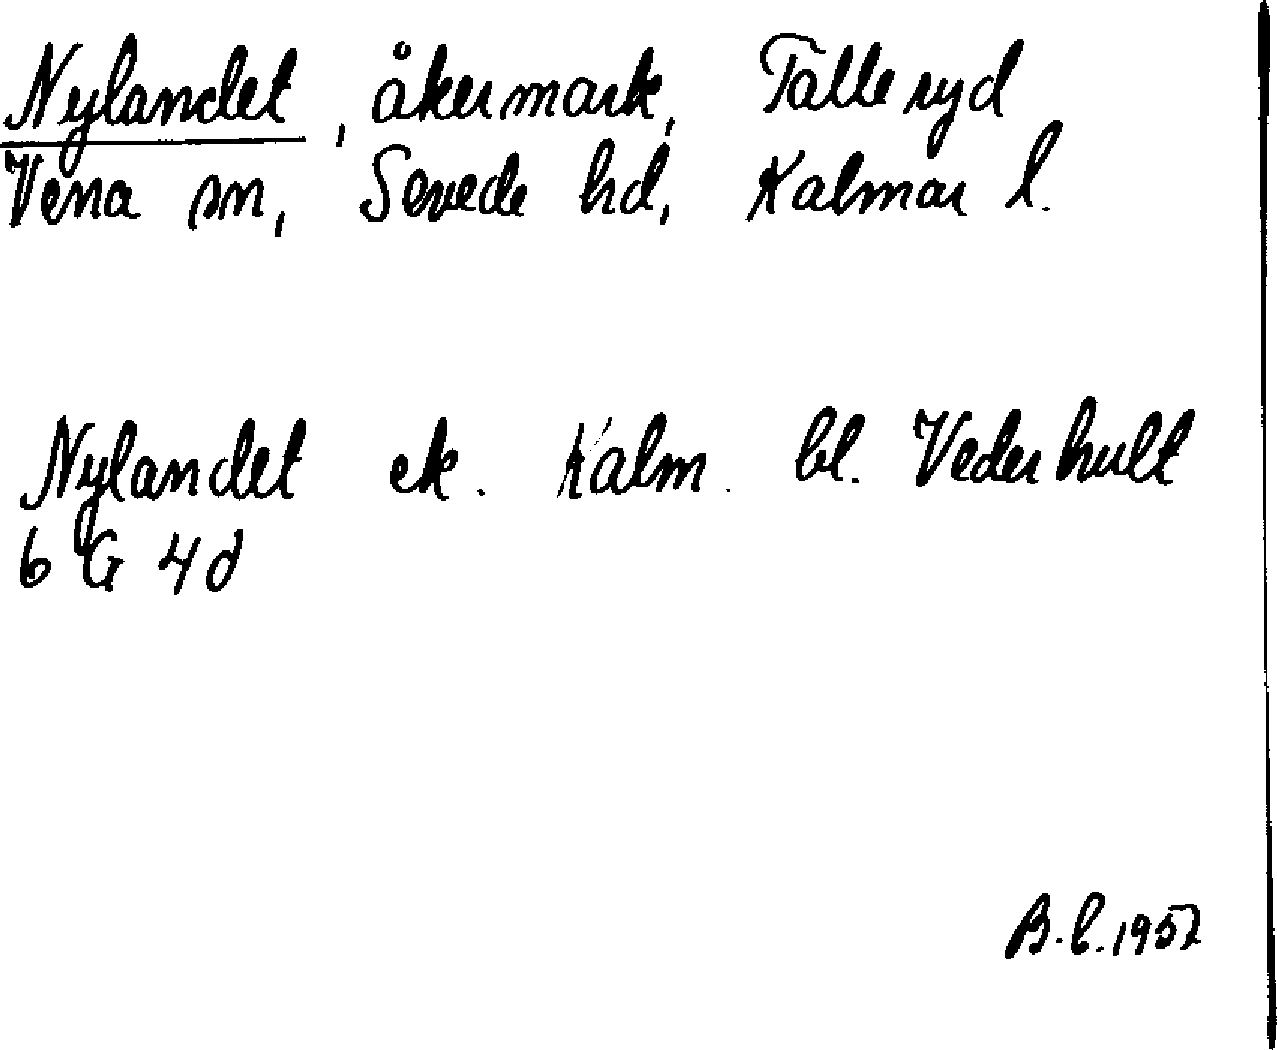 Nylandet, åkermark, Talleryd
Vena sn, Sevede hd, Kalmar l.
Nylandet ek. Kalm. bl. Vederhult
6 G 4d
B.l. 1952